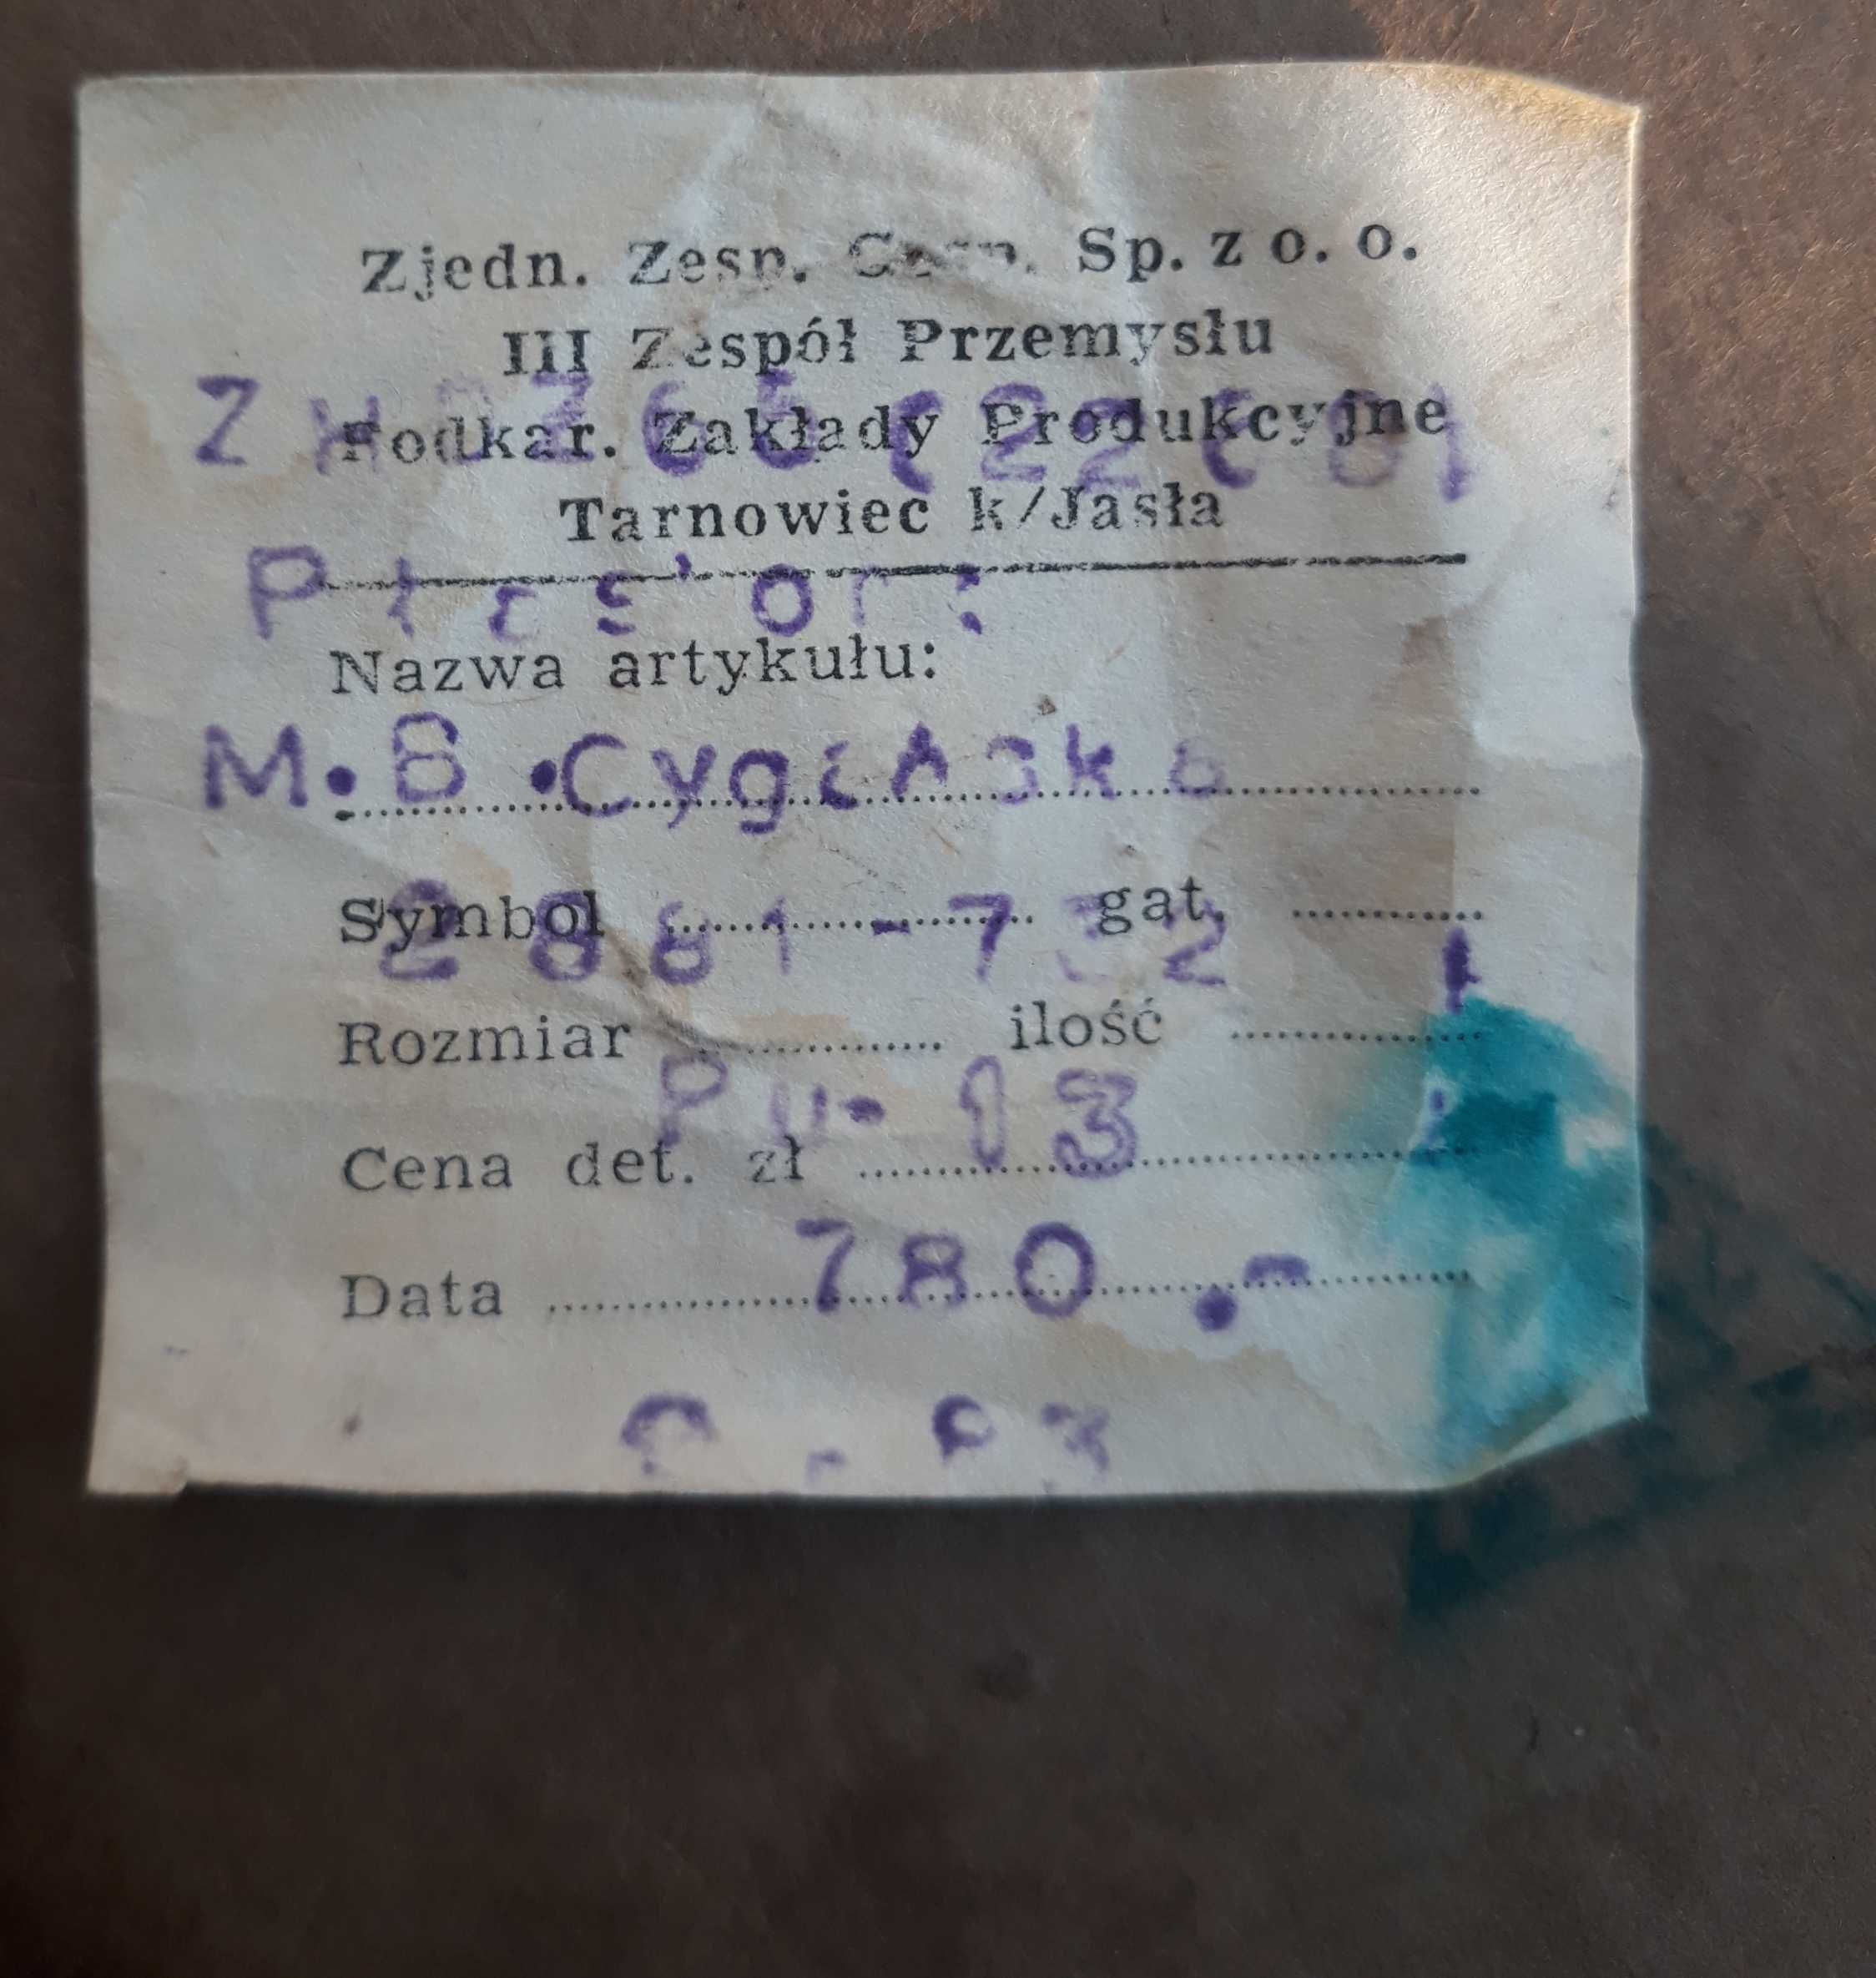 Zjedn. Zesp. Gosp. Sp. z o. o.
III Zespół Przemysłu
Podkar. Zakłady Produkcyjne
Tarnowiec k/Jasła
Nazwa artykułu:
M.B.Cygańska
Symbol gat.
2881-732
Rozmiar ilość
13
Cena det. zł
780.-
Data